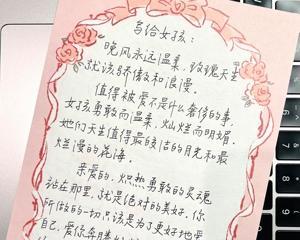 写给女孩:
晚风永远温柔,玫瑰天生
就该骄傲和浪漫。
值得被爱不是什么奢侈的事,
女孩勇敢而温柔,灿烂而明媚。
她们天生值得最皎洁的月光和最
烂漫的花海。
亲爱的,炽热勇敢的灵魂
站在那里,就是绝对的美好。你
所做的一切只该是为了更好地爱
自己,爱你奔腾